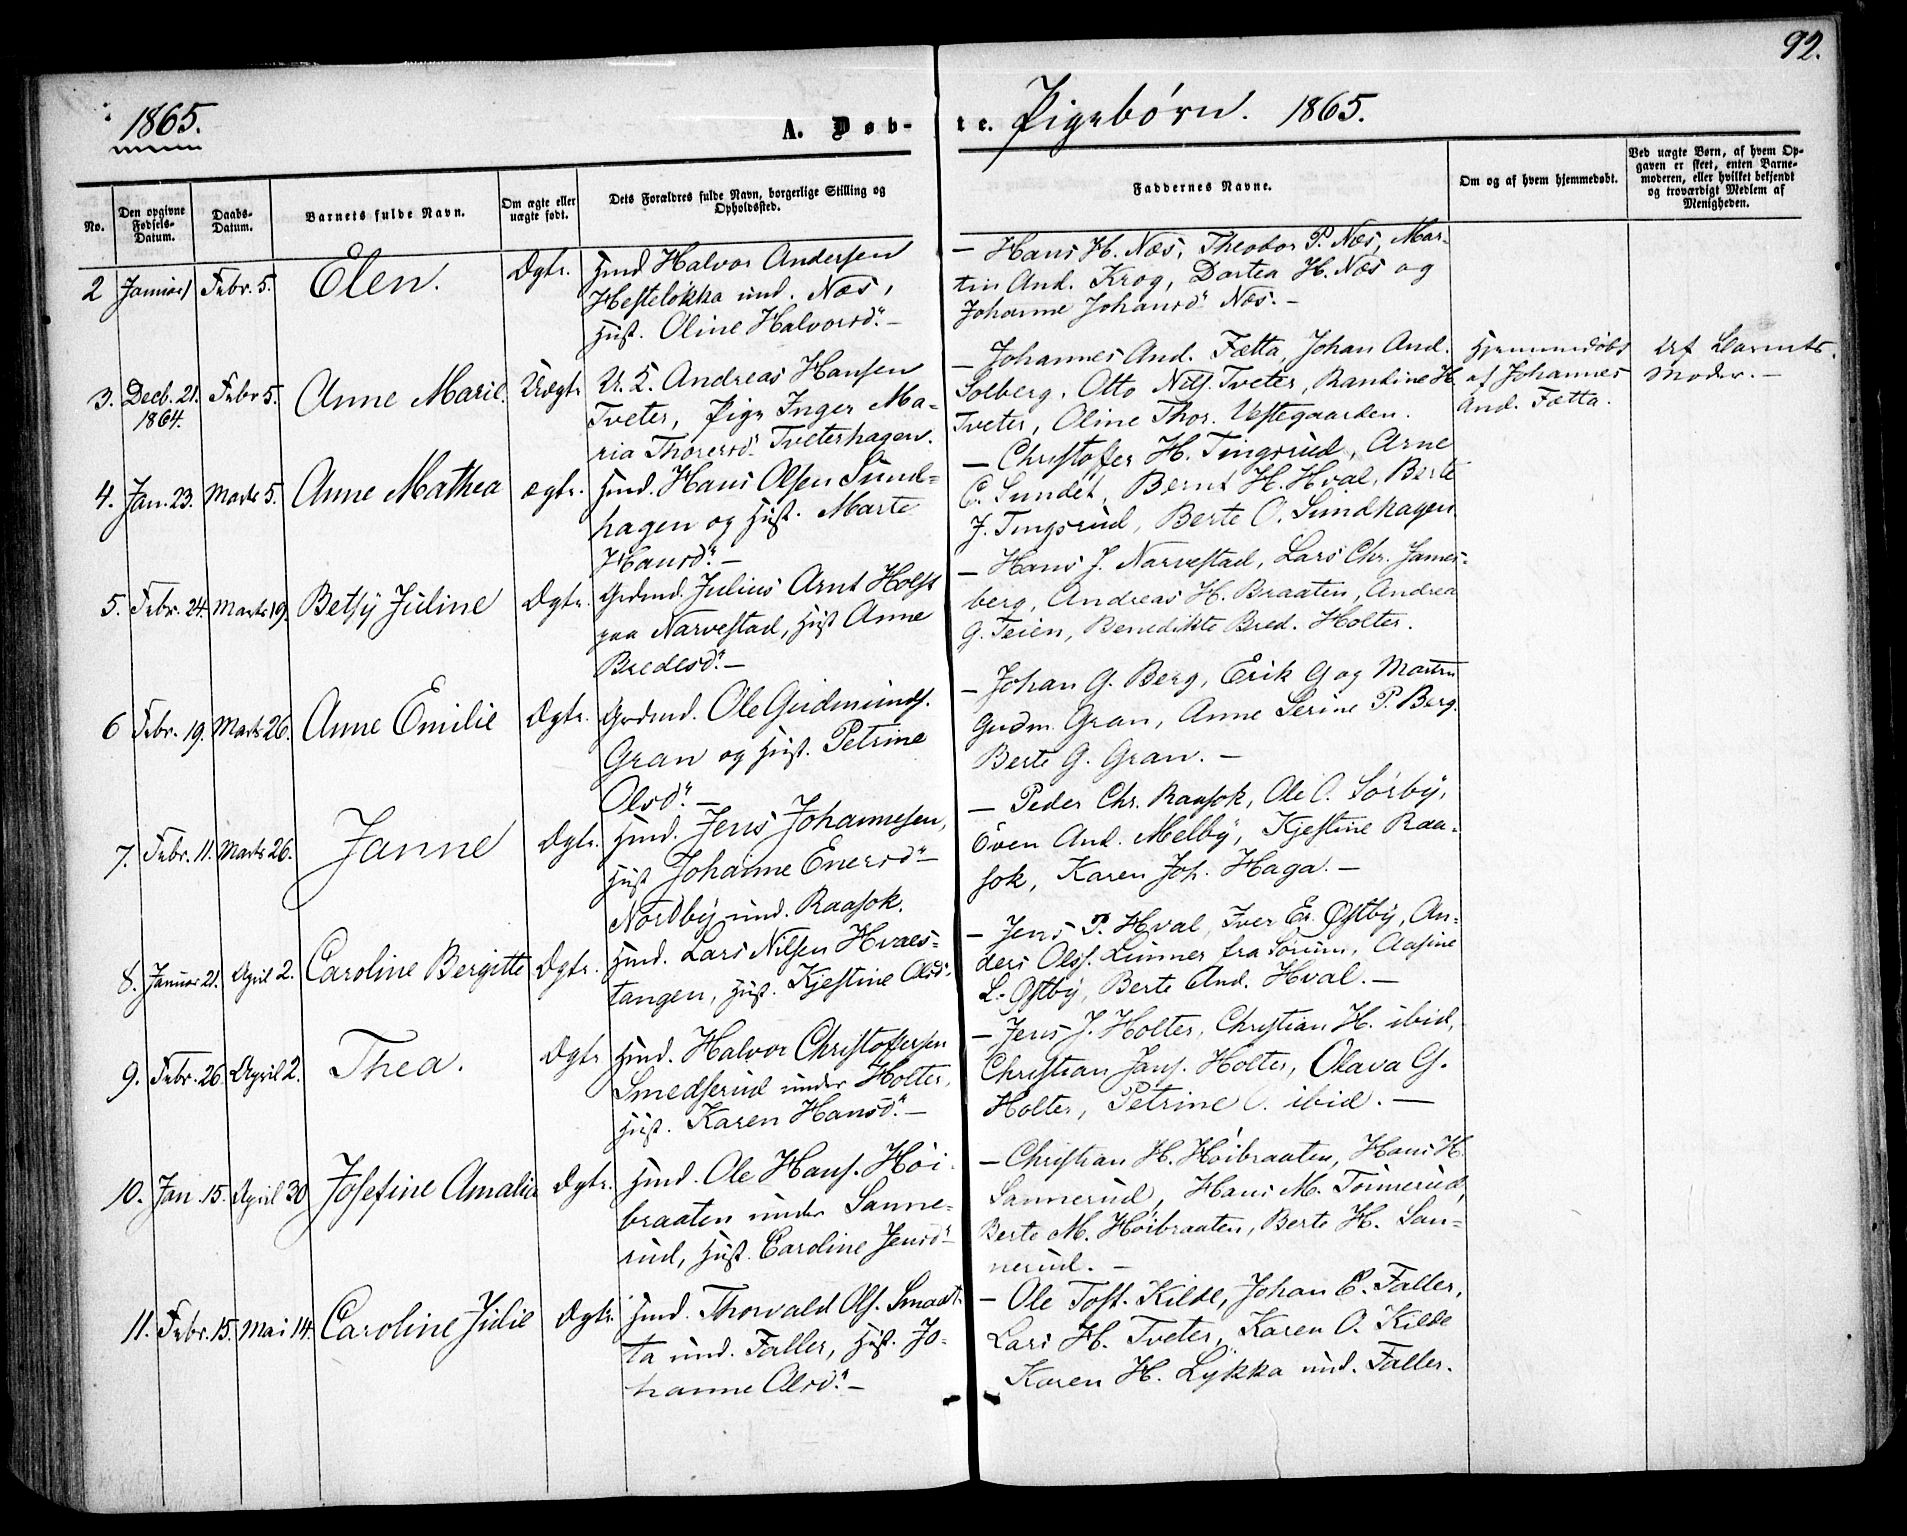 92.
1865.
A. Døb-
te. Pigebørn. 1865.
No.
Den opgivne
Fødsels-
Datum.
Daabs-
Datum.
Barnets fulde Navn.
Om ægte eller
uægte født.
Dets Forældres fulde Navn, borgerlige Stilling og
Opholdssted.
Faddernes Navne.
Om og af hvem hjemmedøbt.
Ved uægte Børn, af hvem Op-
gaven er skeet, enten Barne-
moderen, eller hvilket bekjendt
og troværdigt Medlem af
Menigheden.
2 Januar 1 Febr. 5. Elen. Ægte.
Husmd Halvor Andersen
Hesteløkka und. Næs,
Hust. Oline Halvorsd. –
– Hans H. Næs, Theodor P. Næs, Mar-
tin And. Krog, Dortea H. Næs og
Johanne Johansd Næs. –
3. Decb. 21. 1864. Febr 5. Anne Marie Uægte
U. K. Andreas Hansen
Tveter, Pige Inger Ma-
ria Thoresd. Tveterhagen.
– Johannes And. Fætta, Johan And.
Solberg, Otto Nils. Tveter, Randine H.
Tveter, Oline Thor. Vestegaarden.
Hjemmedøbt
af Johannes
And. Fætta.
Af Barnets
Moder. –
4. Jan. 23. Marts 5. Anne Mathea ægte.
Husmd. Hans Olsen Sund-
hagen og Hust. Marte
Hansd. –
– Christoffer H. Tingsrud, Arne
C. Sundet, Bernt H. Hval, Berte
J. Tingsrud, Berte O. Sundhagen
5. Febr. 24. Marts 19. Betsy Juline Ægte.
Grdmd. Julius Arnt Holst
paa Narvestad, Hust Anne
Bredesd. –
– Hans J. Narvestad, Lars Chr. James-
berg, Andreas H. Braaten, Andrea
G. Teien, Benedikte Bred. Holter.
6 Febr. 19. Marts 26. Anne Emilie Ægte.
Grdmd. Ole Gudmunds.
Gran og Hust. Petrine
Olsd. –
– Johan G. Berg, Erik G og Martin
Gudm. Gran, Anne Serine P. Berg.
Berte G. Gran. –
7. Febr. 11. Marts 26. Janne Ægte.
Husmd. Jens Johannesen,
Hust Johanne Enersd –
Nordby und. Raasok.
– Peder Chr. Raasok, Ole O. Sørby,
Even And. Melby, Kjestine Raa-
sok, Karen Joh. Haga. –
8. Januar 21. April 2. Caroline Bergitte Ægte.
Husmd. Lars Nilsen Hvaes-
tangen, Hust. Kjestine Olsd.
– Jens P. Hval, Iver Er. Østby, An-
ders Olss. Lunner fra Sørum, Aasine
L. Østby, Berte And. Hval. –
9. Febr. 26. April 2. Thea. Ægte
Husmd. Halvor Christoffersen
Smedsrud under Holter,
Hust. Karen Hansd. –
– Jens J. Holter, Christian H. ibid,
Christian Jans. Holter, Olava G.
Holter, Petrine O. ibid. –
10. Jan. 15. April 30 Josefine Amalia Ægte.
Husmd. Ole Hans. Høi-
braaten under Sanne-
rud, Hust. Caroline Jensd –
– Christian H. Høibraaten, Hans H.
Sannerud, Hans M. Tønnerud,
Berte M. Høibraaten, Berte H. San-
nerud. –
11. Febr. 15. Mai 14. Caroline Julie Ægte.
Husmd. Thorvald Ols. Smaat-
ta und. Faller, Hust. Jo-
hanne Olsd. –
– Ole Tost. Kilde, Johan E. Faller,
Lars H. Tveter, Karen O. Kilde
Karen H. Lykka und. Faller.